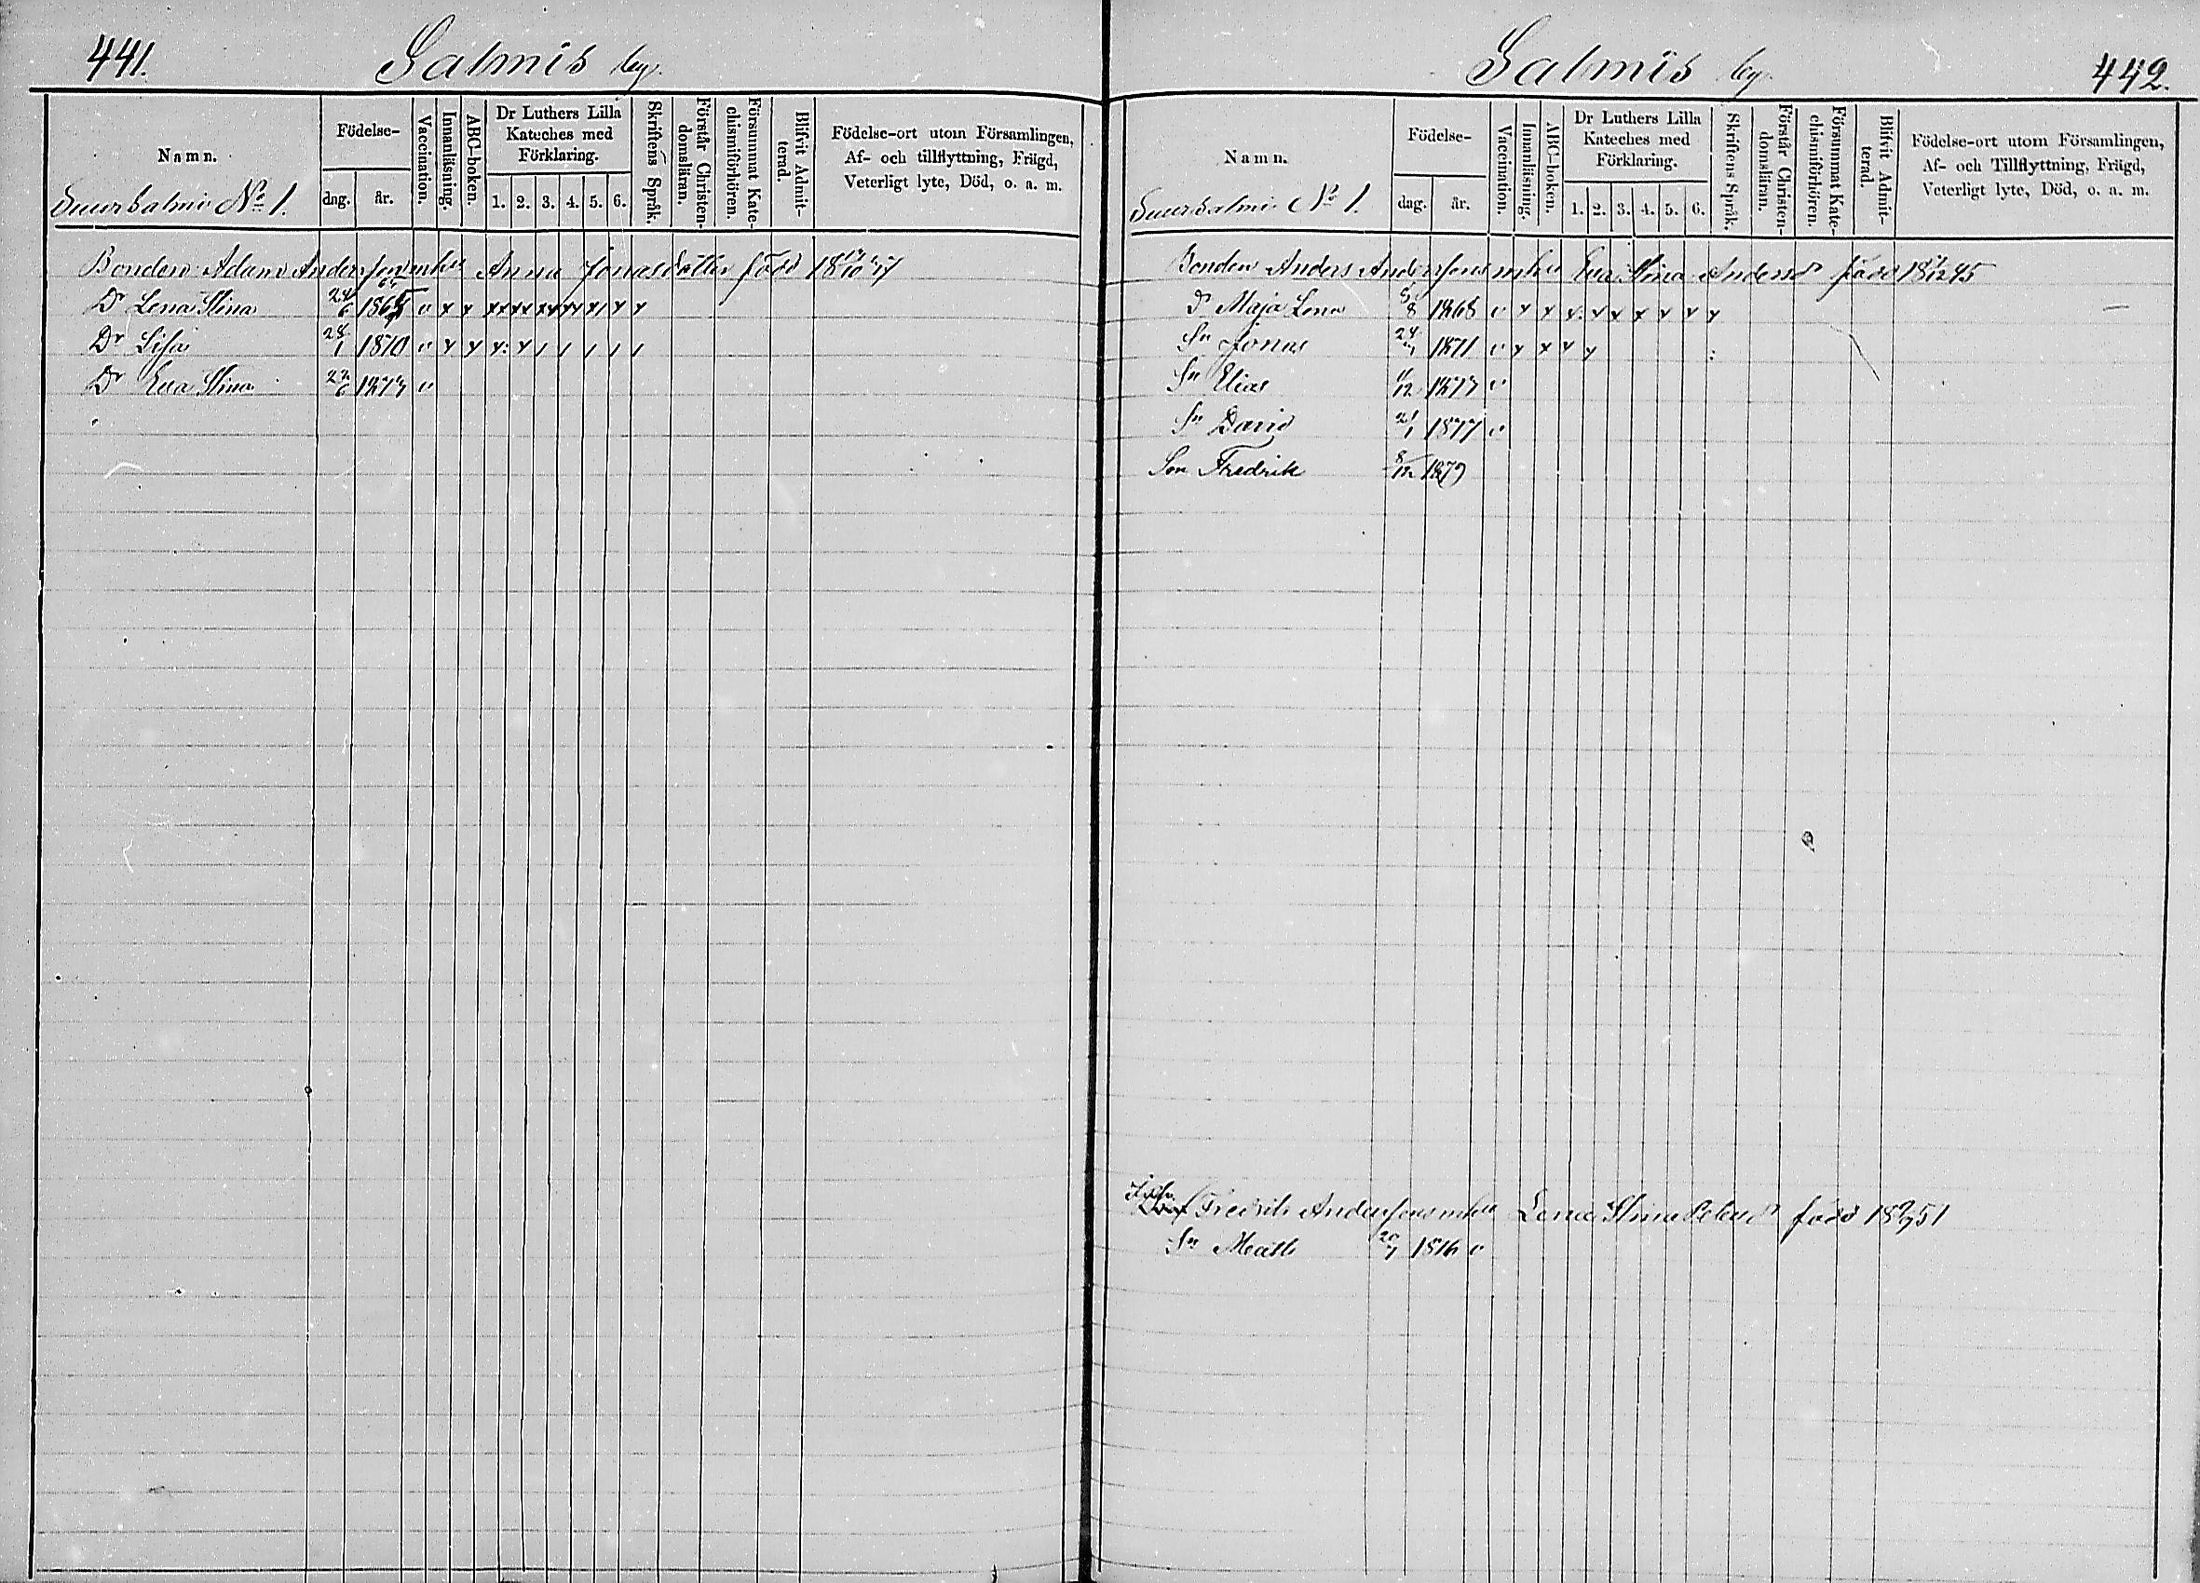 441.
Salmis by.
Namn.
Födelse-
dag. år.
Vaccination.
Innanläsning.
ABC-boken.
Dr Luthers Lilla Kateches med Förklaring.
1. 2. 3. 4. 5. 6.
Skriftens Språk.
Förstår Christen-domsläran.
Försummat Kate-chismiförhören.
Blifvit Admit-terad.
Födelse-ort utom Församlingen,
Af- och tillflyttning, Frägd,
Veterligt lyte, Död, o. a. m.
Suursalmi No 1.
Bonden Adam Anderssons enka Anna Jonasdotter född
Dr Lena Stina 24/6 1865 v x x
Dr Lisa 28/1 1870 v x x x: x / / / / /
Dr Eva Stina 22/6 1877 v
Salmis by
442.
Namn.
Födelse-
dag. år.
Vaccination.
Innanläsning.
ABC-boken.
Dr Luthers Lilla Kateches med Förklaring.
1. 2. 3. 4. 5. 6.
Skriftens Språk.
Förstår Christen-domsläran.
Försummat Kate-chismiförhören.
Blifvit Admit-terad.
Födelse-ort utom Församlingen,
Af- och Tillflyttning, Frägd,
Veterligt lyte, Död, o. a. m.
Suursalmi No 1.
Bonden Anders Anderssons Eva Stina Anders dr född
Dr Maja Lena 1868 v x x x x x x x x x
Sn Jonas 1871 v x x x x
Sn Elias 1873 v
Sn David 21/1 1877 v
Son Fredrik 8/12 1879
Fredrik Anderssons Lena Stina född
Sn Matts 1876 v